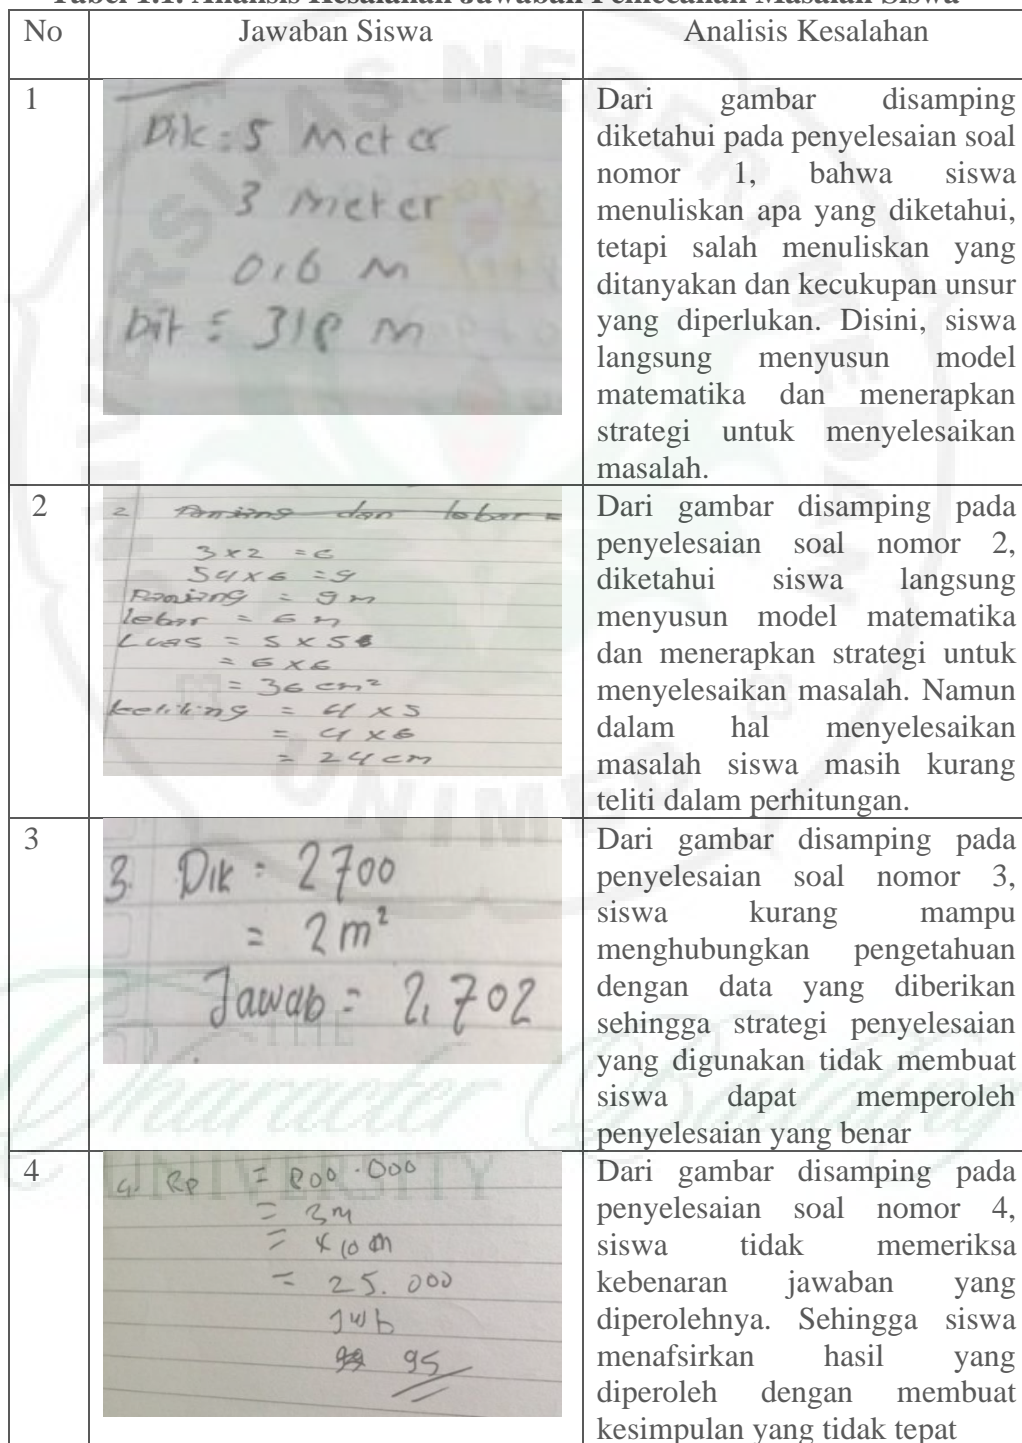 Tabel 1.1. Analisis Kesalahan Jawaban Pemecahan Masalah Siswa
No Jawaban Siswa Analisis Kesalahan
1
Dik : 5 Meter
3 Meter
0,6 m
Dit = 318 m
Dari gambar disamping
diketahui pada penyelesaian soal
nomor 1, bahwa siswa
menuliskan apa yang diketahui,
tetapi salah menuliskan yang
ditanyakan dan kecukupan unsur
yang diperlukan. Disini, siswa
langsung menyusun model
matematika dan menerapkan
strategi untuk menyelesaikan
masalah.
2
2 Panjang dan lebar =
3 x 2 = 6
54 x 6 = 9
Panjang = 9 m
lebar = 6 m
Luas = 5 x 5
= 6 x 6
= 36 cm²
keliling = 4 x 5
= 4 x 6
= 24 cm
Dari gambar disamping pada
penyelesaian soal nomor 2,
diketahui siswa langsung
menyusun model matematika
dan menerapkan strategi untuk
menyelesaikan masalah. Namun
dalam hal menyelesaikan
masalah siswa masih kurang
teliti dalam perhitungan.
3
3. Dik = 2700
= 2 m²
Jawab = 2,702
Dari gambar disamping pada
penyelesaian soal nomor 3,
siswa kurang mampu
menghubungkan pengetahuan
dengan data yang diberikan
sehingga strategi penyelesaian
yang digunakan tidak membuat
siswa dapat memperoleh
penyelesaian yang benar
4
4. Rp = 800.000
= 3 m
= x 10 m
= 25.000
Jwb
95
Dari gambar disamping pada
penyelesaian soal nomor 4,
siswa tidak memeriksa
kebenaran jawaban yang
diperolehnya. Sehingga siswa
menafsirkan hasil yang
diperoleh dengan membuat
kesimpulan yang tidak tepat
UNIVERSITAS NEGERI MEDAN
UNIMED
THE
Character Building
UNIVERSITY